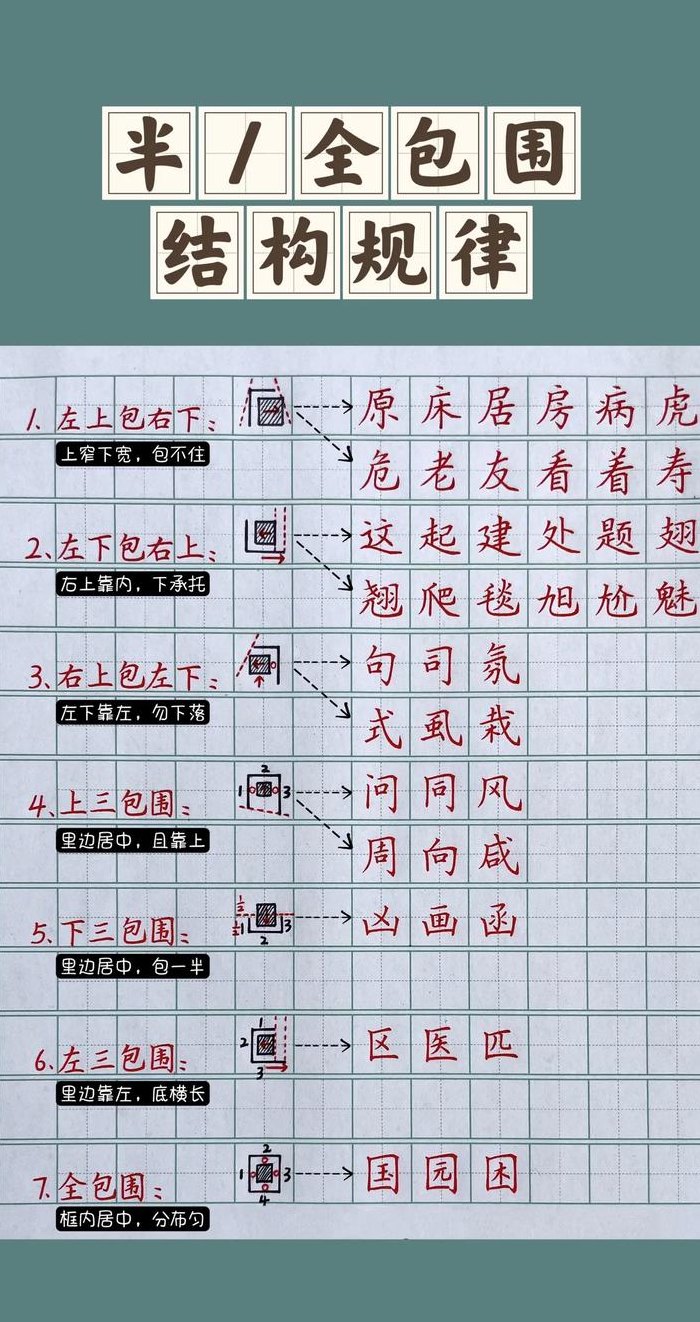 半/全包围
结构规律
1. 左上包右下：
原床居房病虎
上窄下宽，包不住
危老友看着寿
2、左下包右上：
这起建处题翅
右上靠内，下承托
翘爬毯旭尬魅
3、右上包左下：
句司氛
左下靠左，勿下落
式虱栽
4、上三包围：
1 2 3
问同风
里边居中，且靠上
周向咸
5、下三包围：
1/2 1/2 1 2 3
凶画函
里边居中，包一半
6、左三包围：
1 2 3
区医匹
里边靠左，底横长
7、全包围：
1 2 3 4
国园困
框内居中，分布匀